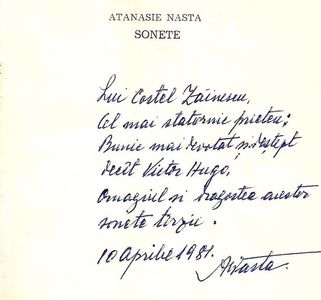 ATANASIE NASTA
SONETE
Lui Costel Zăinescu,
Cel mai statornic prieten;
Bunic mai devotat și deștept
decît Victor Hugo,
Omagiul și dragostea acestor
sonete tîrzii.
10 Aprilie 1981.
ANasta.